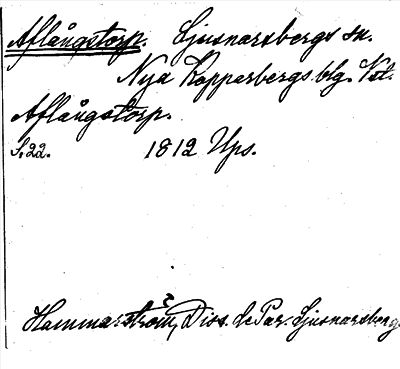 Aflångstorp. Ljusnarsbergs sn.
Nya Kopparbergs blg. Vstl.
Aflångstorp.
S. 22. 1812 Ups.
Hammarström, Diss. de Par. Ljusnarsberg.